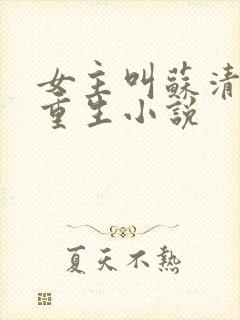 女主叫蘇清
重生小說
夏天不熱